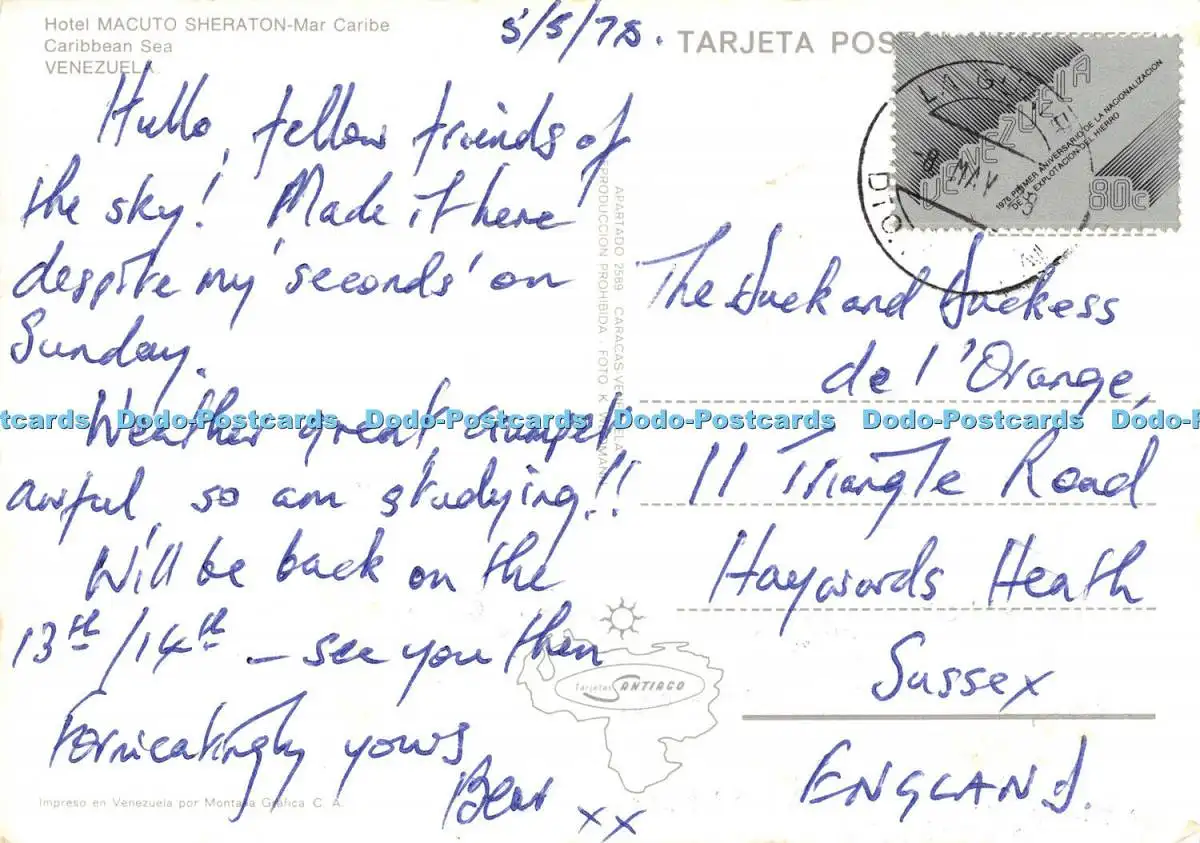 Hotel MACUTO SHERATON-Mar Caribe
Caribbean Sea
VENEZUELA
5/5/78.
Hullo, fellow friends of
the sky! Made it here
despite my 'seconds' on
Sunday.
Weather great, crumpet
awful, so am studying!!
Will be back on the
13th/14th – see you then
Fornicatingly yours
Bear
xx
Impreso en Venezuela por Montaña Gráfica C. A.
APARTADO 2589 CARACAS-VENEZUELA
REPRODUCCION PROHIBIDA - FOTO K.
Tarjetas SANTIAGO
TARJETA POSTAL
VENEZUELA
1976 PRIMER ANIVERSARIO DE LA NACIONALIZACION
DE LA EXPLOTACION DEL HIERRO
80c
MAY
DTO.
The Duck and Duckess
de l'Orange,
11 Triangle Road
Haywards Heath
Sussex
ENGLAND.
Dodo-Postcards Dodo-Postcards Dodo-Postcards Dodo-Postcards Dodo-Postcards